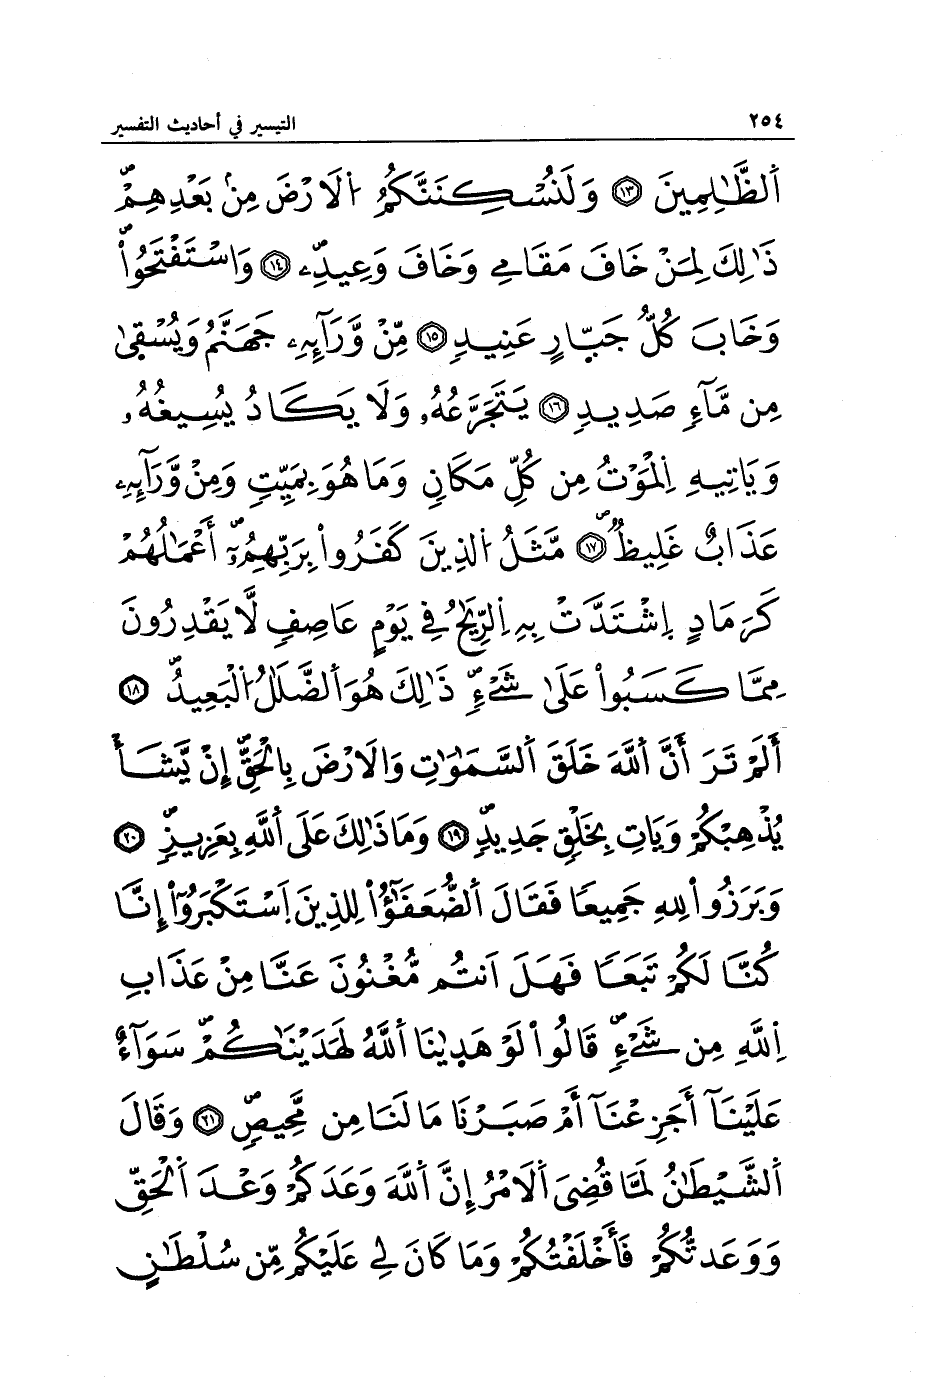 ٢٥٤ التيسير في أحاديث التفسير
اَ۬لظَّٰلِمِينَ ١٣ وَلَنُسْكِنَنَّكُمُ اُ۬لَارْضَ مِنۢ بَعْدِهِمْۖ
ذَٰلِكَ لِمَنْ خَافَ مَقَامِے وَخَافَ وَعِيدِۦۖ ١٤ وَاسْتَفْتَحُواْۖ
وَخَابَ كُلُّ جَبّ۪ارٍ عَنِيدٖ ١٥ مِّنْ وَّرَآئِهِۦ جَهَنَّمُ وَيُسْقَىٰ
مِن مَّآءٖ صَدِيدٖ ١٦ يَتَجَرَّعُهُۥ وَلَا يَكَادُ يُسِيغُهُۥ
وَيَاتِيهِ اِ۬لْمَوْتُ مِن كُلِّ مَكَانٖ وَمَا هُوَ بِمَيِّتٖ وَمِنْ وَّرَآئِهِۦ
عَذَابٌ غَلِيظٞۖ ١٧ مَّثَلُ اُ۬لذِينَ كَفَرُواْ بِرَبِّهِمُۥٓۖ أَعْمَٰلُهُمْ
كَرَمَادٍ اِ۪شْتَدَّتْ بِهِ اِ۬لرِّيَٰحُ فِے يَوْمٍ عَاصِفٖ لَّا يَقْدِرُونَ
مِمَّا كَسَبُواْ عَلَىٰ شَےْءٖۖ ذَٰلِكَ هُوَ اَ۬لضَّلَٰلُ اُ۬لْبَعِيدُۖ ١٨
أَلَمْ تَرَ أَنَّ اَ۬للَّهَ خَلَقَ اَ۬لسَّمَٰوَٰتِ وَالَارْضَ بِالْحَقِّۖ إِنْ يَّشَأْ
يُذْهِبْكُمْ وَيَاتِ بِخَلْقٖ جَدِيدٖۖ ١٩ وَمَا ذَٰلِكَ عَلَى اَ۬للَّهِ بِعَزِيزٖۖ ٢٠
وَبَرَزُواْ لِلهِ جَمِيعاٗ فَقَالَ اَ۬لضُّعَفَٰٓؤُاْ لِلذِينَ اَ۪سْتَكْبَرُوٓاْ إِنَّا
كُنَّا لَكُمْ تَبَعاٗ فَهَلَ اَنتُم مُّغْنُونَ عَنَّا مِنْ عَذَابِ
اِ۬للَّهِ مِن شَےْءٖۖ قَالُواْ لَوْ هَد۪يٰنَا اَ۬للَّهُ لَهَدَيْنَٰكُمْۖ سَوَآءٌ
عَلَيْنَآ أَجَزِعْنَآ أَمْ صَبَرْنَا مَا لَنَا مِن مَّحِيصٖۖ ٢١ وَقَالَ
اَ۬لشَّيْطَٰنُ لَمَّا قُضِيَ اَ۬لَامْرُ إِنَّ اَ۬للَّهَ وَعَدَكُمْ وَعْدَ اَ۬لْحَقِّ
وَوَعَدتُّكُمْ فَأَخْلَفْتُكُمْ وَمَا كَانَ لِے عَلَيْكُم مِّن سُلْطَٰنٍ